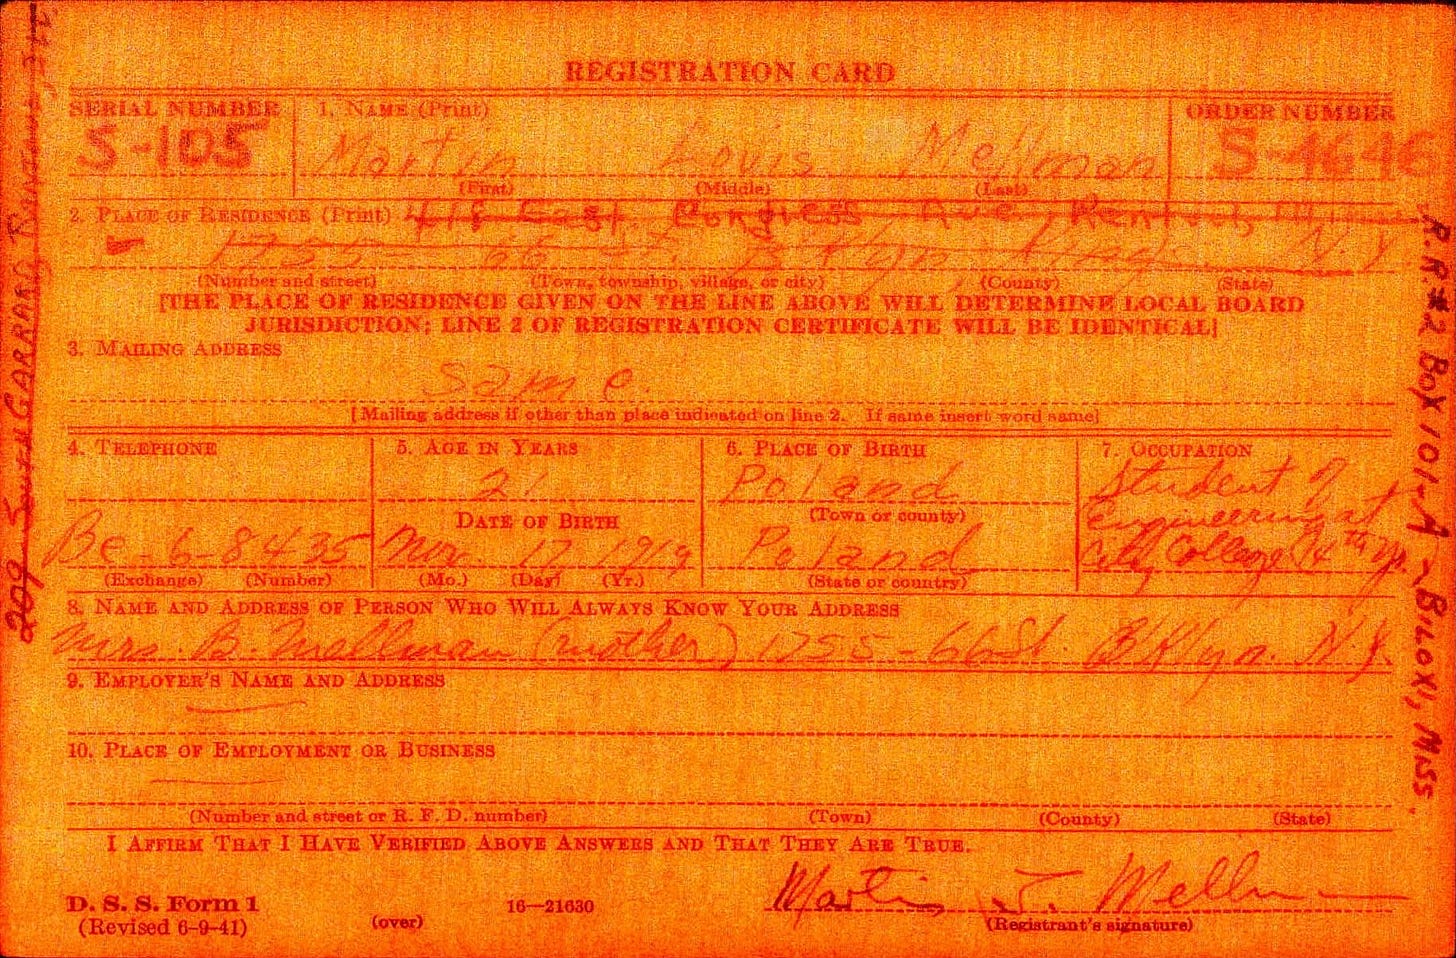 REGISTRATION CARD
SERIAL NUMBER
1. NAME (Print)
ORDER NUMBER
S-105
Martin Louis Mellman
S-1646
(First) (Middle) (Last)
2. PLACE OF RESIDENCE (Print) 418 East Congress Ave,
1755 - 66 St. BKlyn Kings N.Y
(Number and street) (Town, township, village, or city) (County) (State)
[THE PLACE OF RESIDENCE GIVEN ON THE LINE ABOVE WILL DETERMINE LOCAL BOARD
JURISDICTION; LINE 2 OF REGISTRATION CERTIFICATE WILL BE IDENTICAL]
3. MAILING ADDRESS
Same.
[Mailing address if other than place indicated on line 2. If same insert word same]
4. TELEPHONE
5. AGE IN YEARS
6. PLACE OF BIRTH
7. OCCUPATION
21
Poland
Student of
(Town or county)
engineering at
DATE OF BIRTH
Be-6-8435
Nov. 17 1919
Poland
City College (4th Yr.
(Exchange) (Number)
(Mo.) (Day) (Yr.)
(State or country)
8. NAME AND ADDRESS OF PERSON WHO WILL ALWAYS KNOW YOUR ADDRESS
Mrs. B. Mellman (mother) 1755-66 St. BKlyn. N.Y.
9. EMPLOYER'S NAME AND ADDRESS
10. PLACE OF EMPLOYMENT OR BUSINESS
(Number and street or R. F. D. number) (Town) (County) (State)
I AFFIRM THAT I HAVE VERIFIED ABOVE ANSWERS AND THAT THEY ARE TRUE.
Martin Mellman
D. S. S. Form 1
(Revised 6-9-41)
(over)
16—21630
(Registrant's signature)
209 South GARRARD
R.R.#2 BOX 101-A - BILOXI, MISS.